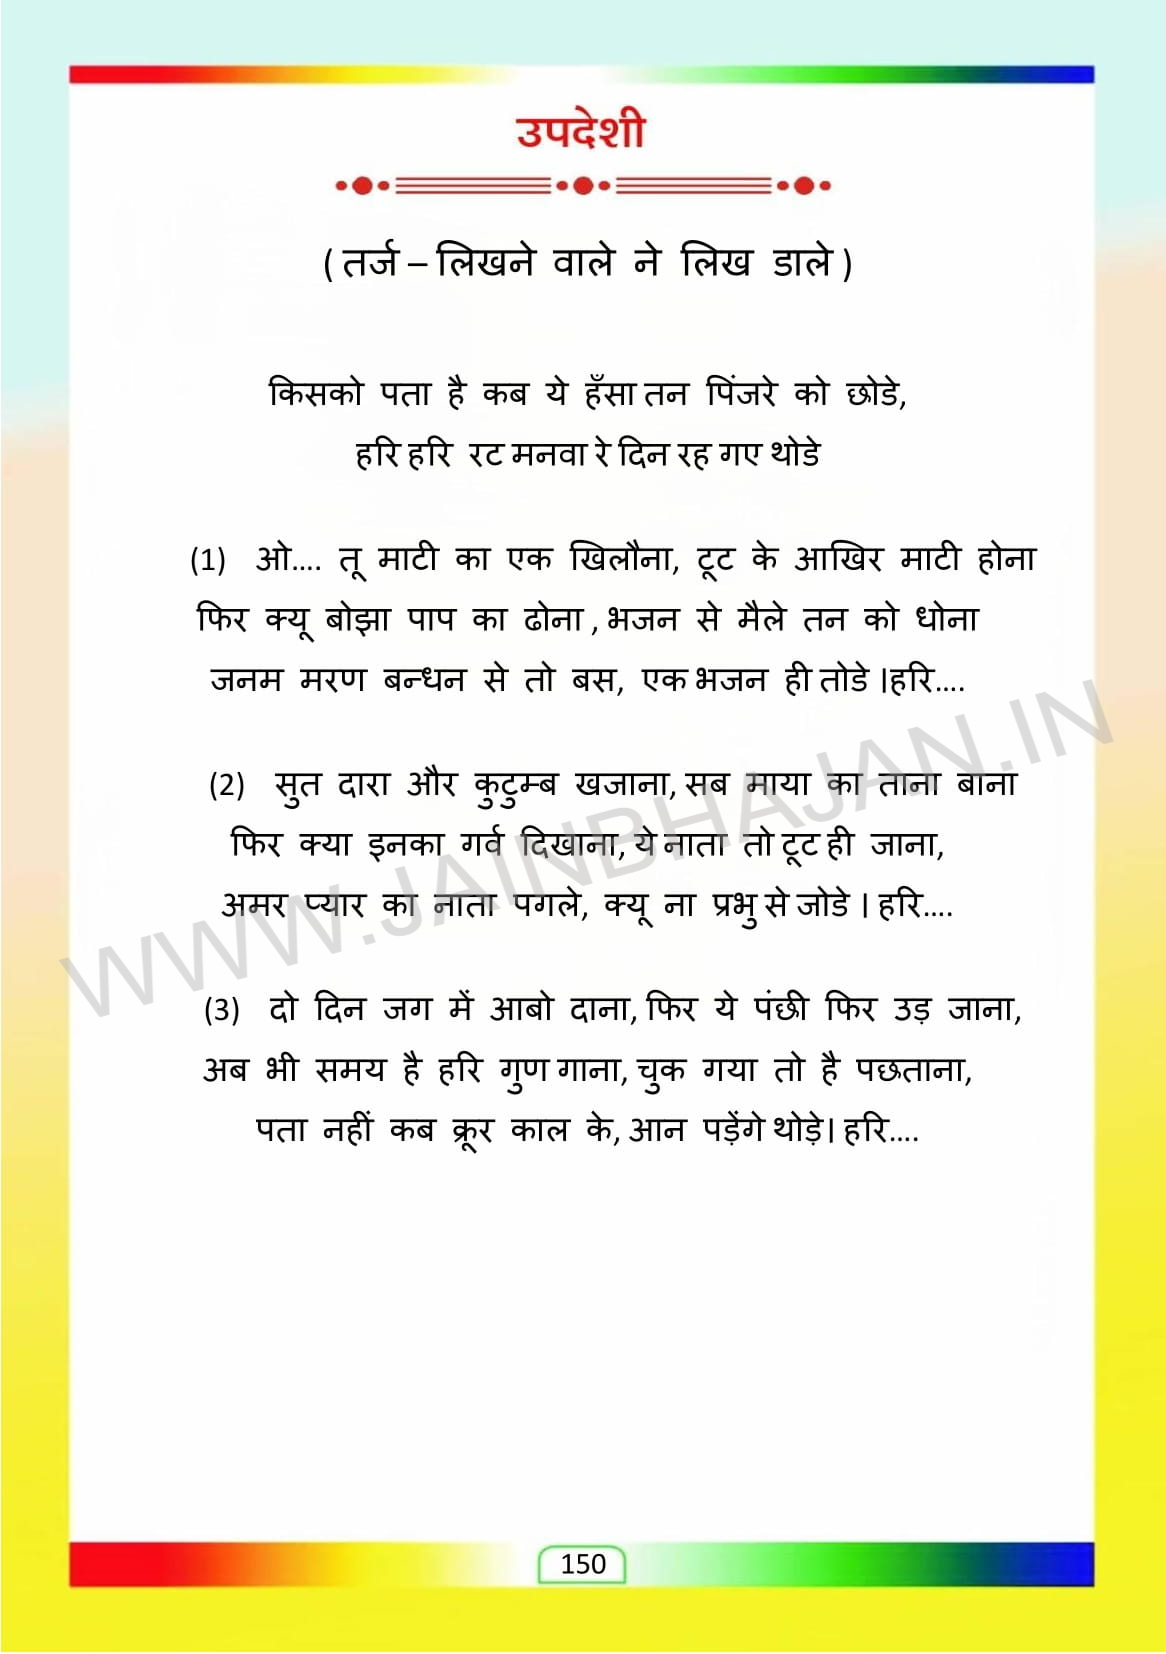 उपदेशी
( तर्ज – लिखने वाले ने लिख डाले )
किसको पता है कब ये हँसा तन पिंजरे को छोडे,
हरि हरि रट मनवा रे दिन रह गए थोडे
(1) ओ.... तू माटी का एक खिलौना, टूट के आखिर माटी होना
फिर क्यू बोझा पाप का ढोना , भजन से मैले तन को धोना
जनम मरण बन्धन से तो बस, एक भजन ही तोडे ।हरि....
(2) सुत दारा और कुटुम्ब खजाना, सब माया का ताना बाना
फिर क्या इनका गर्व दिखाना, ये नाता तो टूट ही जाना,
अमर प्यार का नाता पगले, क्यू ना प्रभु से जोडे । हरि....
(3) दो दिन जग में आबो दाना, फिर ये पंछी फिर उड़ जाना,
अब भी समय है हरि गुण गाना, चुक गया तो है पछताना,
पता नहीं कब क्रूर काल के, आन पड़ेंगे थोड़े। हरि....
WWW.JAINBHAJAN.IN
150